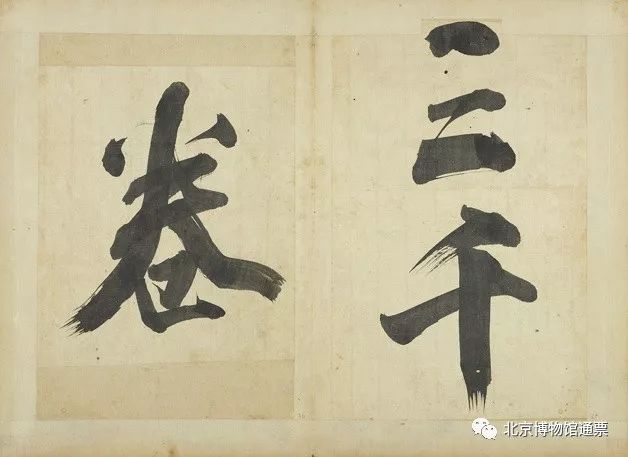 三千
卷
北京博物馆通票